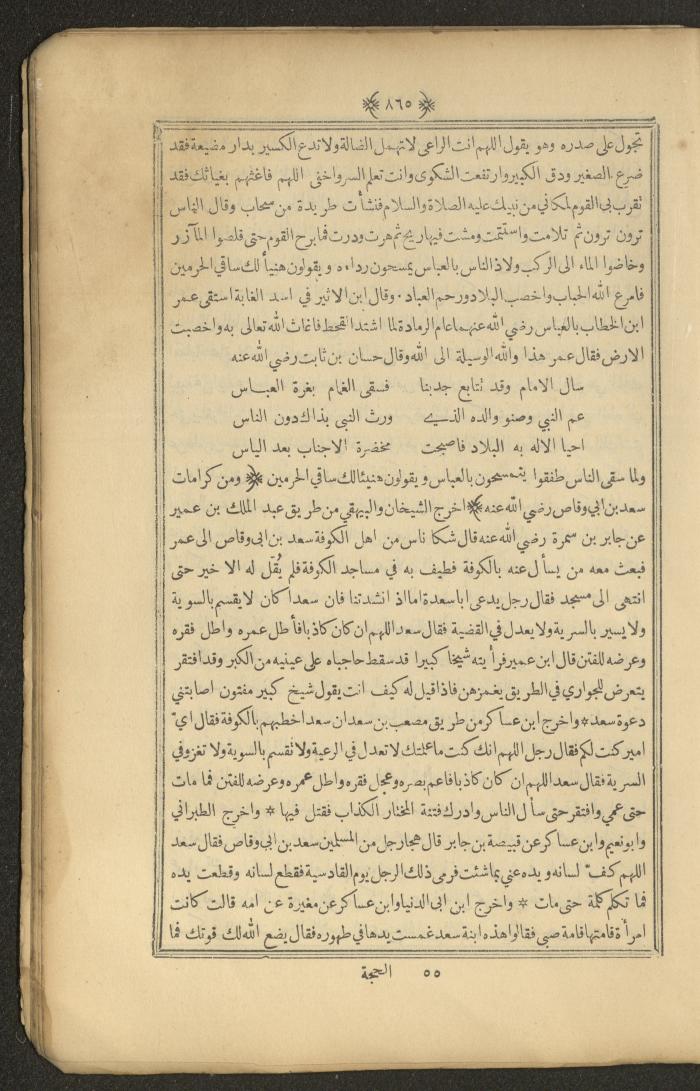 ﴿ ٨٦٥ ﴾
تجول على صدره وهو يقول اللهم انت الراعى لاتهمل الضالة ولا تدع الكسير بدار مضيعة فقد
ضرع الصغير ودق الكبير وارتفعت الشكوى وانت تعلم السر واخفى اللهم فاغثهم بغياثك فقد
تقرب بي القوم لمكاني من نبيك عليه الصلاة والسلام فنشأت طريدة من سحاب وقال الناس
ترون ترون ثم تلامت واستتمت ومشت فيها ريح ثم هرت ودرت فما برح القوم حتى قلصوا المآزر
وخاضوا الماء الى الركب ولاذ الناس بالعباس يمسحون رداءه ويقولون هنيأ لك ساقي الحرمين
فامرع الله الجناب واخصب البلاد ورحم العباد . وقال ابن الاثير في اسد الغابة استقى عمر
ابن الخطاب بالعباس رضي الله عنهما عام الرمادة لما اشتد القحط فاغاث الله تعالى به واخصبت
الارض فقال عمر هذا والله الوسيلة الى الله وقال حسان بن ثابت رضي الله عنه
سال الامام وقد تتابع جدبنا فسقى الغمام بغرة العباس
عم النبي وصنو والده الذي ورث النبى بذاك دون الناس
احيا الاله به البلاد فاصبحت مخضرة الاجناب بعد الياس
ولما سقى الناس طفقوا يتمسحون بالعباس ويقولون هنيئا لك ساقي الحرمين ﴿ ومن كرامات
سعد بن ابي وقاص رضي الله عنه ﴾ اخرج الشيخان والبيهقي من طريق عبد الملك بن عمير
عن جابر بن سمرة رضي الله عنه قال شكا ناس من اهل الكوفة سعد بن ابى وقاص الى عمر
فبعث معه من يسأل عنه بالكوفة فطيف به في مساجد الكوفة فلم يُقَل له الا خير حتى
انتهى الى مسجد فقال رجل يدعى ابا سعدة اما اذ انشدتنا فان سعدا كان لا يقسم بالسوية
ولا يسير بالسرية ولا يعدل في القضية فقال سعد اللهم ان كان كاذبا فأطل عمره واطل فقره
وعرضه للفتن قال ابن عمير فرأيته شيخا كبيرا قد سقط حاجباه على عينيه من الكبر وقد افتقر
يتعرض للجواري في الطريق يغمزهن فاذا قيل له كيف انت يقول شيخ كبير مفتون اصابتني
دعوة سعد * واخرج ابن عساكر من طريق مصعب بن سعد ان سعدا خطبهم بالكوفة فقال ايّ
امير كنت لكم فقال رجل اللهم انك كنت ما علمتك لا تعدل في الرعية ولا تقسم بالسوية ولا تغزو في
السرية فقال سعد اللهم ان كان كاذبا فاعم بصره وعجل فقره واطل عمره وعرضه للفتن فما مات
حتى عمي وافتقر حتى سأل الناس وادرك فتنة المختار الكذاب فقتل فيها * واخرج الطبراني
وابو نعيم وابن عساكر عن قبيصة بن جابر قال هجا رجل من المسلمين سعد بن ابي وقاص فقال سعد
اللهم كفّ لسانه ويده عني بما شئت فرمى ذلك الرجل يوم القادسية فقطع لسانه وقطعت يده
فما تكلم كلمة حتى مات * واخرج ابن ابى الدنيا وابن عساكر عن مغيرة عن امه قالت كانت
امرأة قامتها قامة صبي فقالوا هذه ابنة سعد غمست يدها في طهوره فقال يضع الله لك قوتك فما
٥٥ الحجة